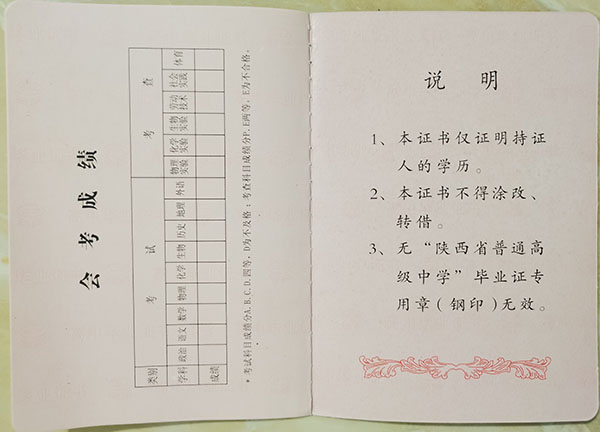 会考成绩
类别 考试 考查
学科 政治 语文 数学 物理 化学 生物 历史 地理 外语 物理实验 化学实验 生物实验 劳动技术 社会实践 体育
成绩
*考试科目成绩分A、B、C、D、四等,D为不及格;考查科目成绩分P、E两等,E为不合格。
说 明
1、本证书仅证明持证
人的学历。
2、本证书不得涂改、
转借。
3、无“陕西省普通高
级中学”毕业证专
用章(钢印)无效。